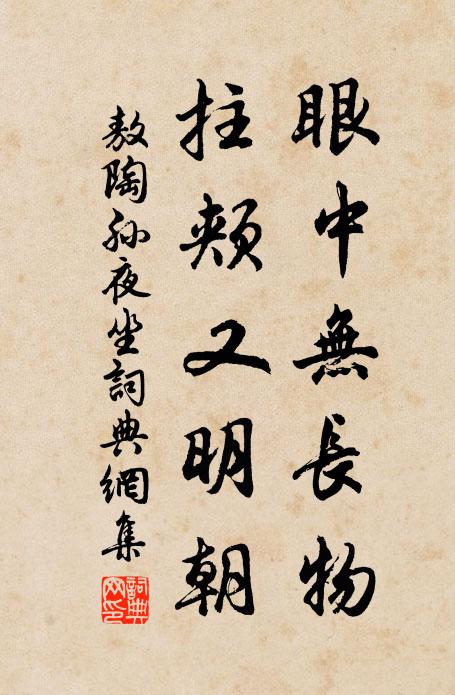 眼中無長物
拄頰又明朝
敖陶孫夜坐詞典網集
詞典
网印